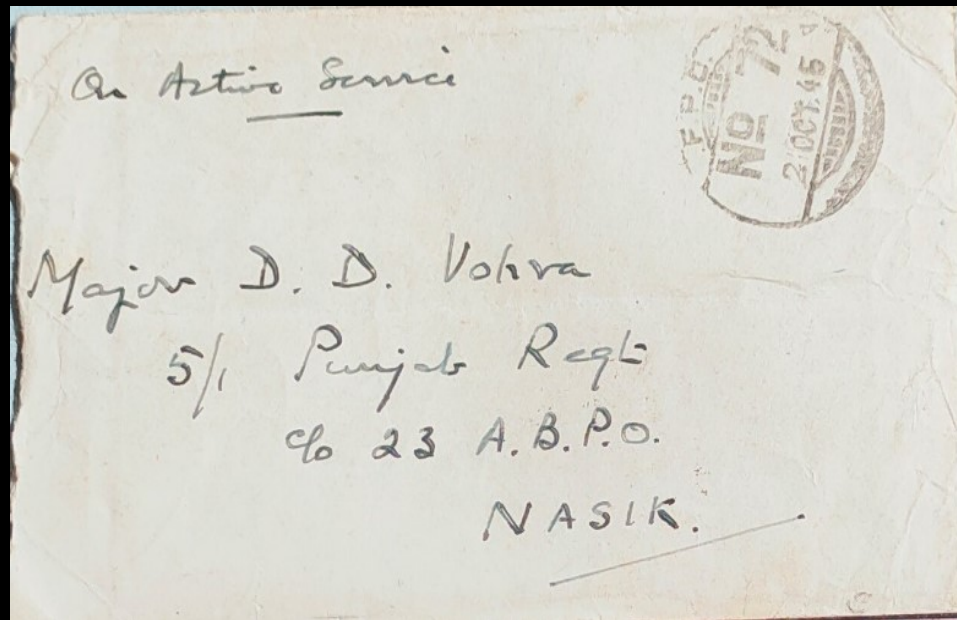 On Active Service
F.P.O.
No 72
2 OCT.45
Major D. D. Vohra
5/1 Punjab Regt
c/o 23 A.B.P.O.
NASIK.